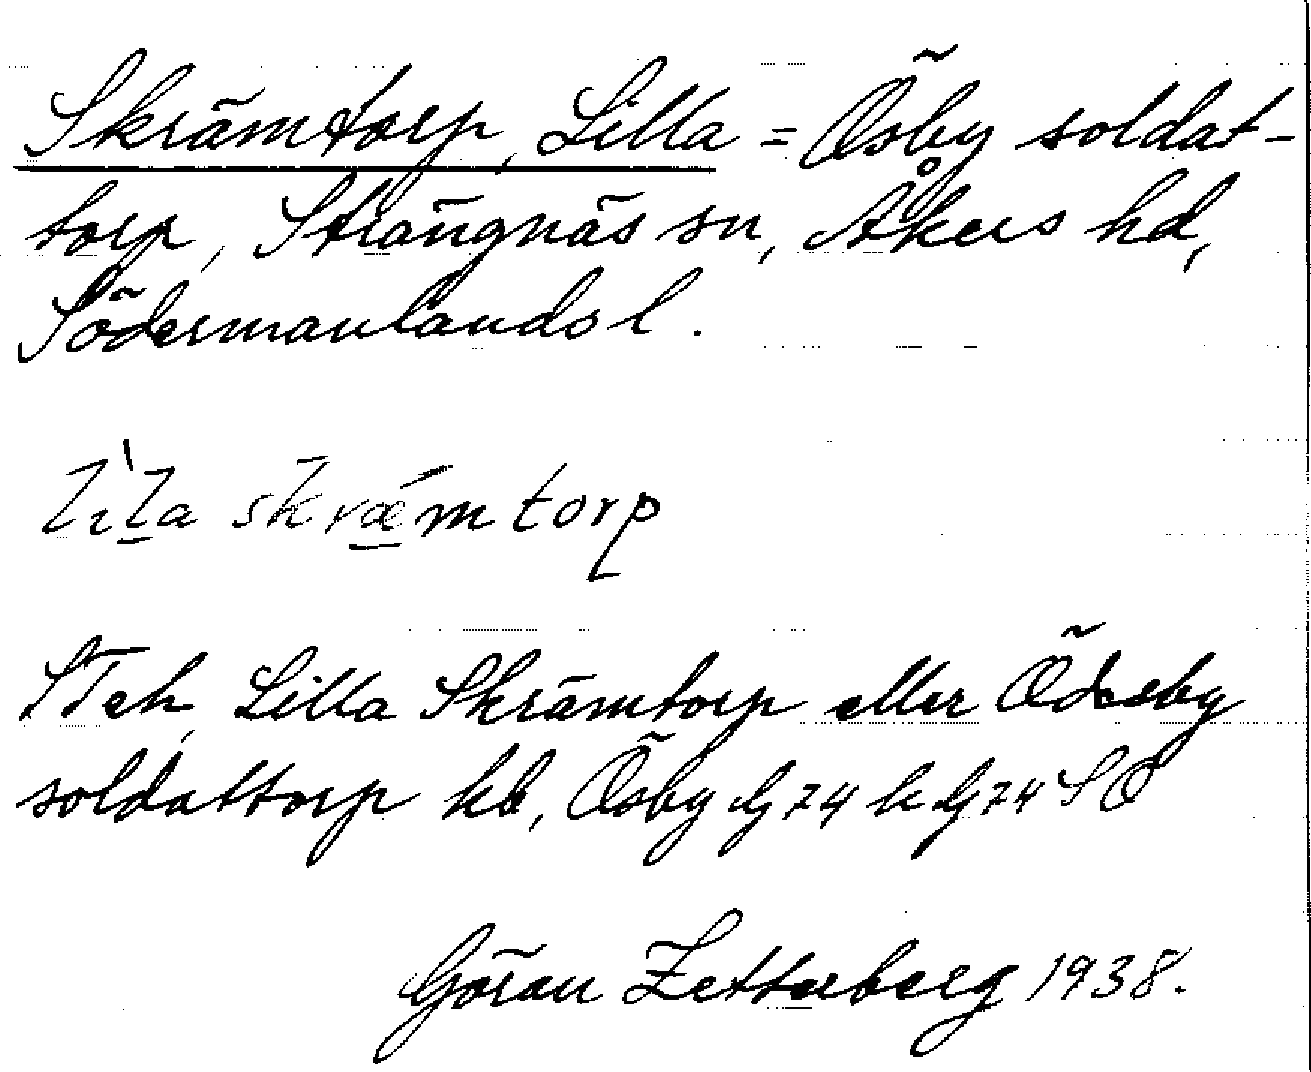 Skrämtorp, Lilla = Ösby soldat-
torp, Strängnäs sn, Åkers hd,
Södermanlands l.
lìla skræ´mtorp
Lilla Skrämtorp eller Ödesby
soldattorp kb, Ösby G74 k G74 SO
Göran Zetterberg 1938.